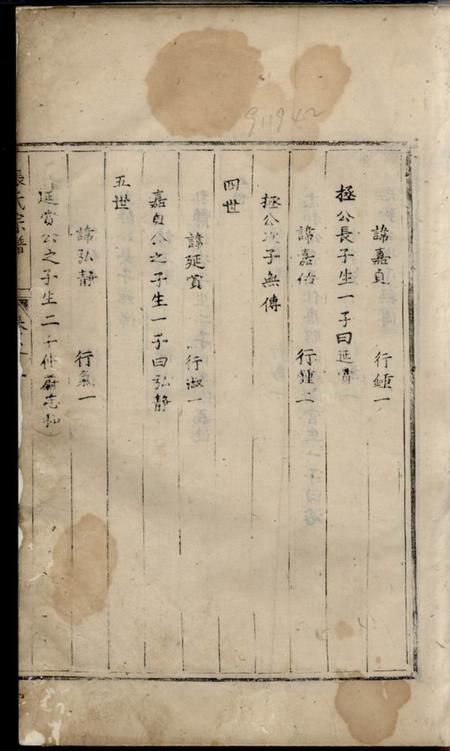 911942
諱嘉貞 行鍾一
拯公長子生一子曰延賞
諱嘉佑 行鍾二
拯公次子無傳
四世
諱延賞 行淑一
嘉貞公之子生一子曰弘靜
五世
諱弘靜 行氣一
延賞公之子生二子
張氏宗譜